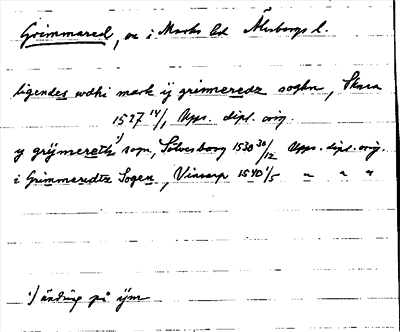 Grimmared, sn i Marks hd Älvsborgs l.
ligendes wdhi mark ij grimeredz soghn, Skara
1527 14/1 Upps. dipl. orig.
y grÿmereth¹⁾ sogn, Sölvesborg 1530 30/12 Upps. dipl. orig.
i Grimmaredtz Sogen, Vinsarp 1540 1/5 " " "
¹⁾ ändring på ÿm